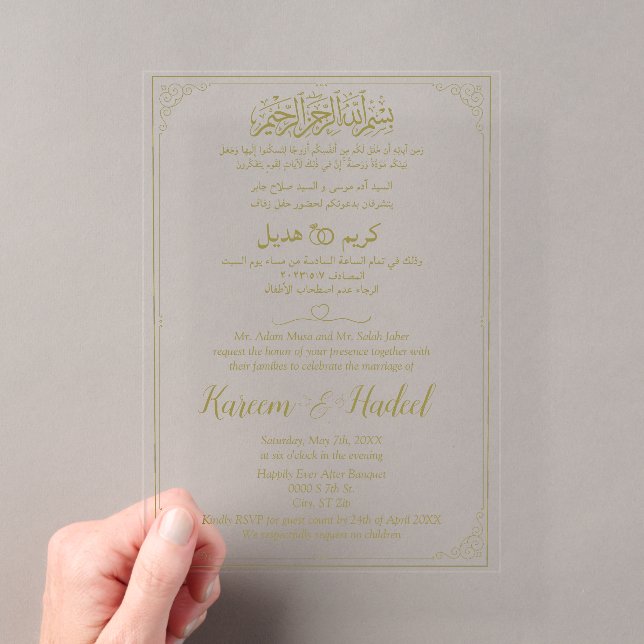 بِسْمِ ٱللَّهِ ٱلرَّحْمَٰنِ ٱلرَّحِيمِ
وَمِن آيَاتِهِ أَن خَلَقَ لَكُم مِن أَنفُسِكُم أَزوَٰجًا لِتَسكُنوا إِلَيها وَجَعَلَ
بَينَكُم مَوَدَّةً وَرَحمَةً ۚ إِنَّ في ذٰلِكَ لَآياتٍ لِقَومٍ يَتَفَكَّرونَ
السيد آدم موسى و السيد صلاح جابر
يتشرفان بدعوتكم لحضور حفل زفاف
كريم هديل
وذلك في تمام الساعة السادسة من مساء يوم السبت
المصادف ٢٠٢٣\٥\٧
الرجاء عدم اصطحاب الأطفال
Mr. Adam Musa and Mr. Salah Jaber
request the honor of your presence together with
their families to celebrate the marriage of
Kareem & Hadeel
Saturday, May 7th, 20XX
at six o'clock in the evening
Happily Ever After Banquet
0000 S 7th St.
City, ST Zip
Kindly RSVP for guest count by 24th of April 20XX
We respectfully request no children